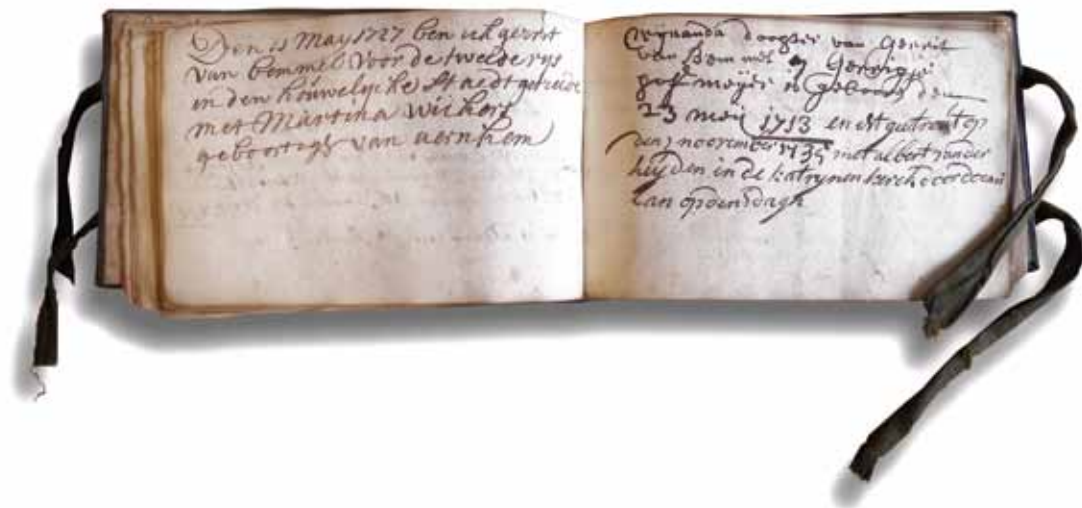 Den 15 May 1727 ben ick gerrit
van bemmel voor de twelde rys
in den houwelycke Staedt getrede
met Martina Wichers
geboortegh van aernhem
Wynanda dogter van Gerrit
van Bemmel en Gerrigje
meijer is gebooren den
23 meij 1713 en est getrout op
den november 1735 met albert vander
heyden in de katrynen kerck
van opdensdagh